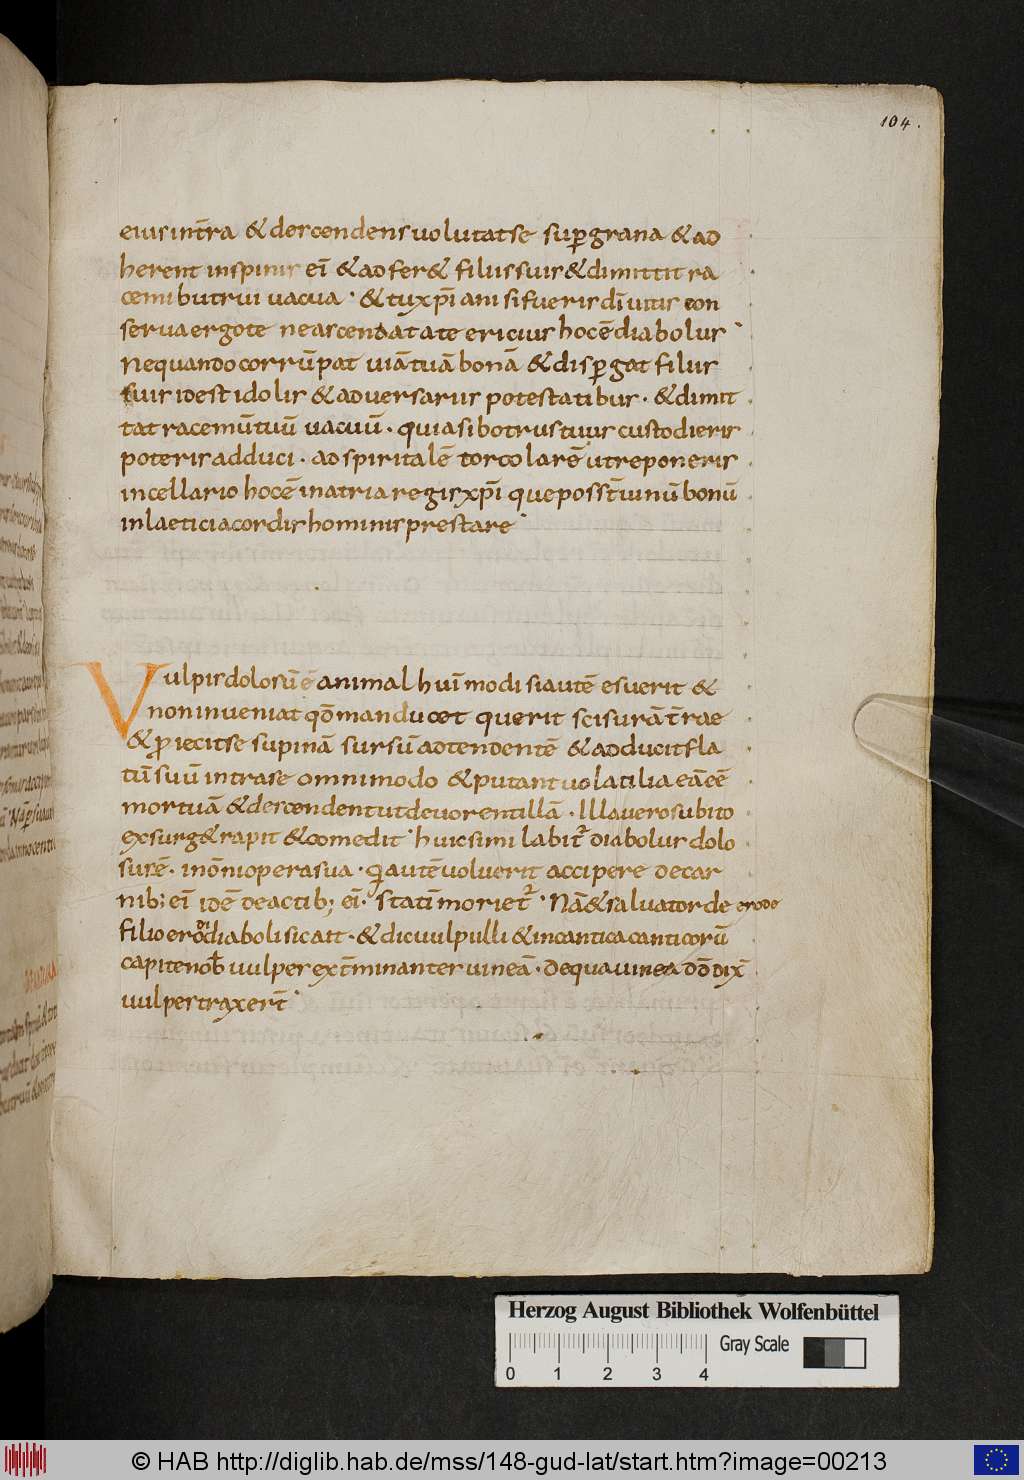 104.
eiusint̄ra & descendens uolutatse sup̱grana & ad
herent inspinis ei᷒ & adfer& filiissuis & dimittit ra
cemibutrui uacua · & tu xp̄i ani sifueris dī uitis con
serua ergo te ne ascendat ate ericius hocē diabolus
nequando corrūpat uiā tuā bonā & disp̱gat filiis
suis idest idolis & aduersariis potestatibus · & dimit
tat racemū tuū uacuū · quia si botrus tuus custodieris
poteris adduci · ad spiritalē torcolarē ut reponeris
incellario hocē inatria regis xp̄i que possT̄ uinū bonū
in laeticia cordis hominis prestare
Vulpis dolosū ē animal h uī modi si autē esuerit &
non inueniat qō manducet querit scisurā t̄rae
& ꝓiecit se supinā sursū adtendentē & adducit fla
tū suū intra se omnimodo & putant uolatilia eā eē
mortuā & descendent ut deuorent illā · Illa uero subito
exsurg& rapit & comedit · huic simi labit᷒ diabolus dolo
sus ē · inōni opera sua · qi autē uoluerit accipere de car
nib; ei᷒ idē de actib; ei᷒ · statī moriet᷒ · Nā & saluator de erode
filio erodi diaboli sic ait · & dic uulpi illi & incantica canticorū
capite nob̄ uulpes ext̄minantes uineā · de qua uinea dd̄ dix̄
uulpes traxer̄t
Herzog August Bibliothek Wolfenbüttel
Gray Scale
0 1 2 3 4
© HAB http://diglib.hab.de/mss/148-gud-lat/start.htm?image=00213